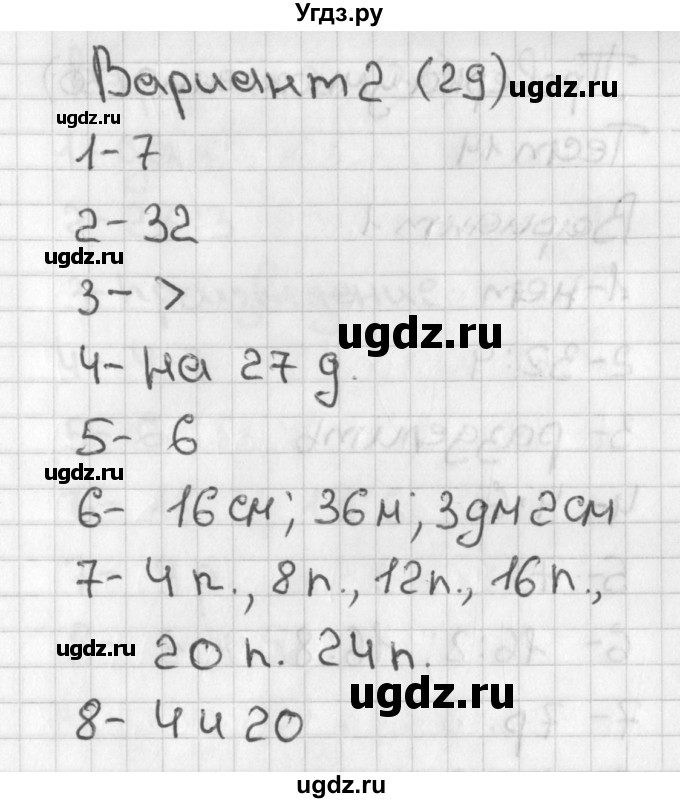 Угдз.ру
Вариант 2 (29)
ugdz.ru
ugdz.ru
1 - 7
2 - 32
ugdz.ru
3 - >
ugdz.ru
4 - на 27 д.
5 - 6
ugdz.ru
6 - 16 см; 36 м; 3 дм 2 см
7 - 4 п., 8 п., 12 п., 16 п.,
ugdz.ru
20 п. 24 п.
ugdz.ru
8 - 4 и 20
ugdz.ru